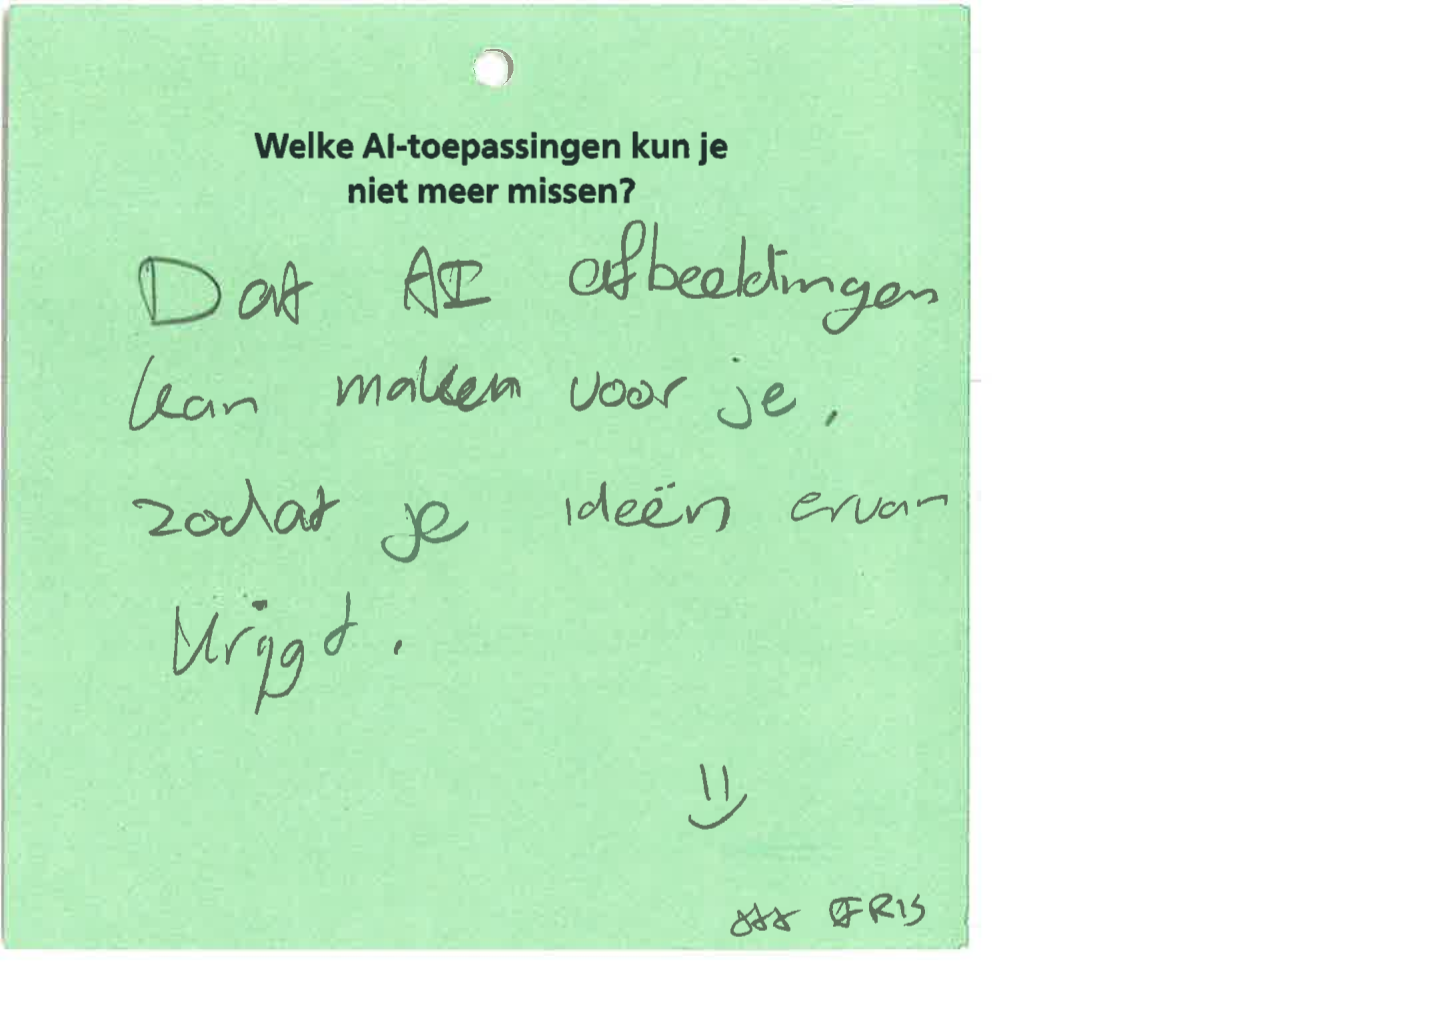 Welke AI-toepassingen kun je
niet meer missen?
Dat AI afbeeldingen
kan maken voor je.
zodat je ideeën ervan
krijgt.
xxx